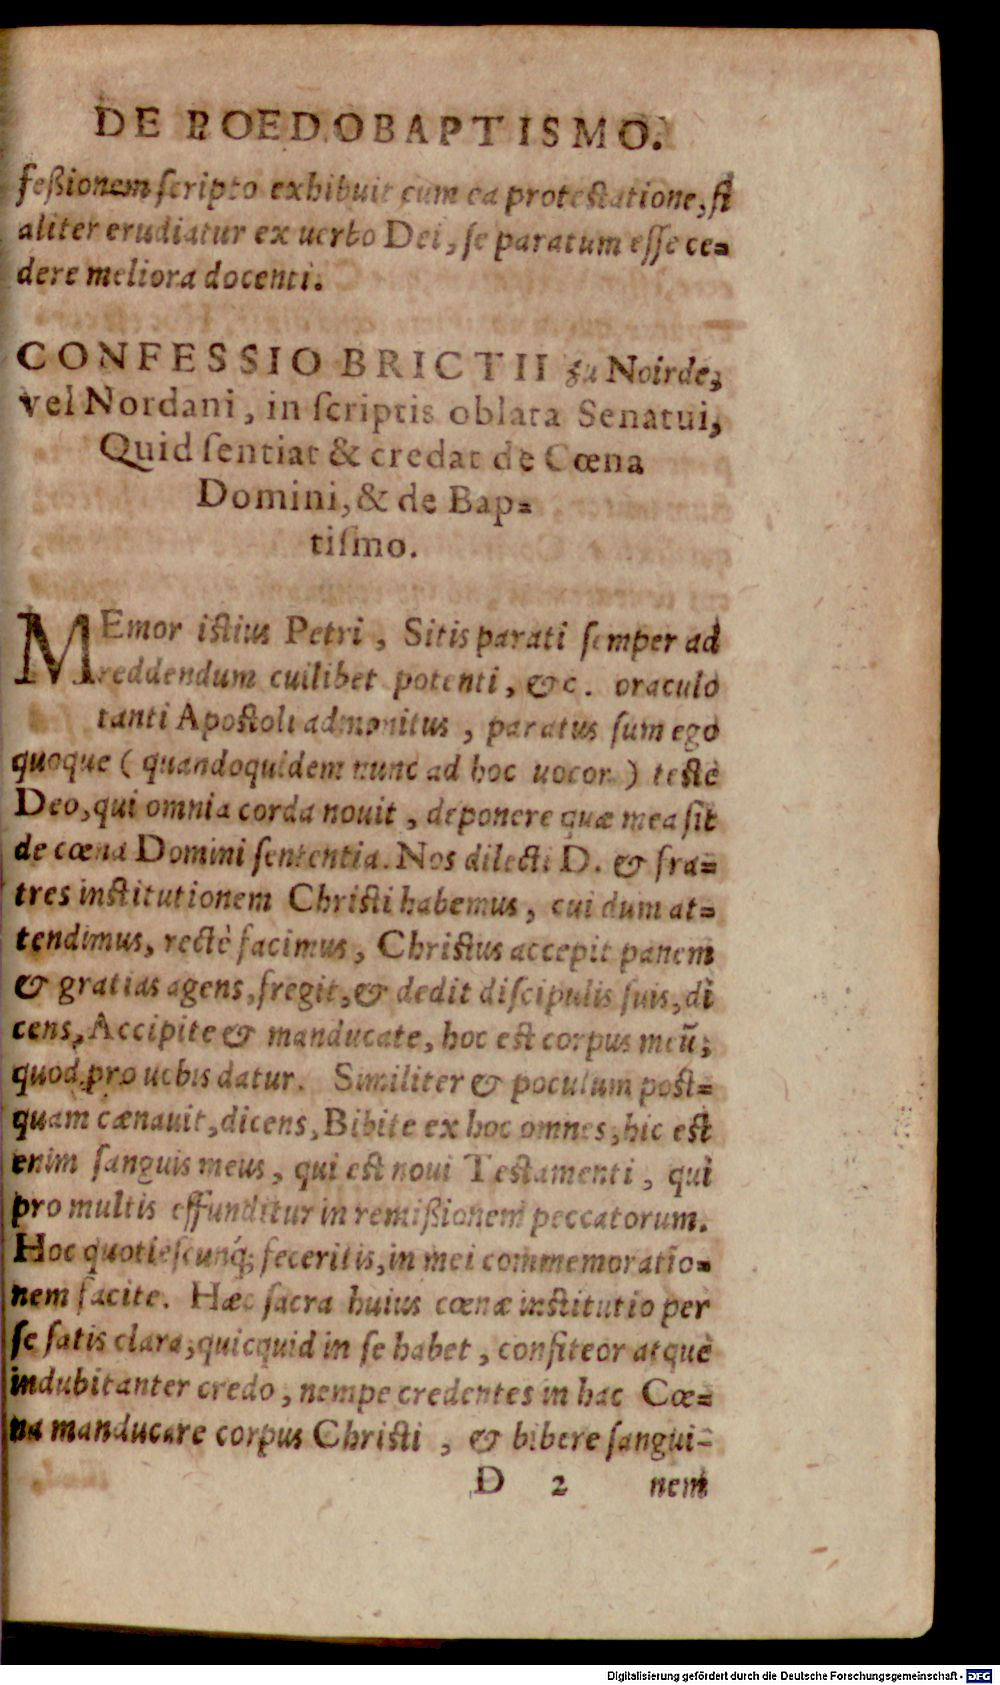 DE POEDOBAPTISMO.
feßionem ſcripto exhibuit cum ea proteſtatione, ſi
aliter erudiatur ex uerbo Dei, ſe paratum eſſe ce⸗
dere meliora docenti.
CONFESSIO BRICTII zu Noirde,
vel Nordani, in ſcriptis oblata Senatui,
Quid ſentiat & credat de Cœna
Domini, & de Bap⸗
tiſmo.
MEmor iſtius Petri, Sitis parati ſemper ad
reddendum cuilibet potenti, &c. oraculo
tanti Apoſtoli admonitus, paratus ſum ego
quoque (quandoquidem nunc ad hoc uocor) teſte
Deo, qui omnia corda nouit, deponere quæ mea ſit
de cœna Domini ſententia. Nos dilecti D. & fra⸗
tres inſtitutionem Chriſti habemus, cui dum at⸗
tendimus, rectè facimus, Chriſtus accepit panem
& gratias agens, fregit, & dedit diſcipulis ſuis, di
cens, Accipite & manducate, hoc eſt corpus meũ;
quod pro uobis datur. Similiter & poculum poſt⸗
quam cænauit, dicens, Bibite ex hoc omnes, hic eſt
enim ſanguis meus, qui eſt noui Teſtamenti, qui
pro multis effunditur in remißionem peccatorum.
Hoc quotieſcunq́; feceritis, in mei commemoratio⸗
nem facite. Hæc ſacra huius cœnæ inſtitutio per
ſe ſatis clara, quicquid in ſe habet, confiteor atque
indubitanter credo, nempe credentes in hac Cœ⸗
na manducare corpus Chriſti, & bibere ſangui-
D 2 nem
Digitalisierung gefördert durch die Deutsche Forschungsgemeinschaft - DFG